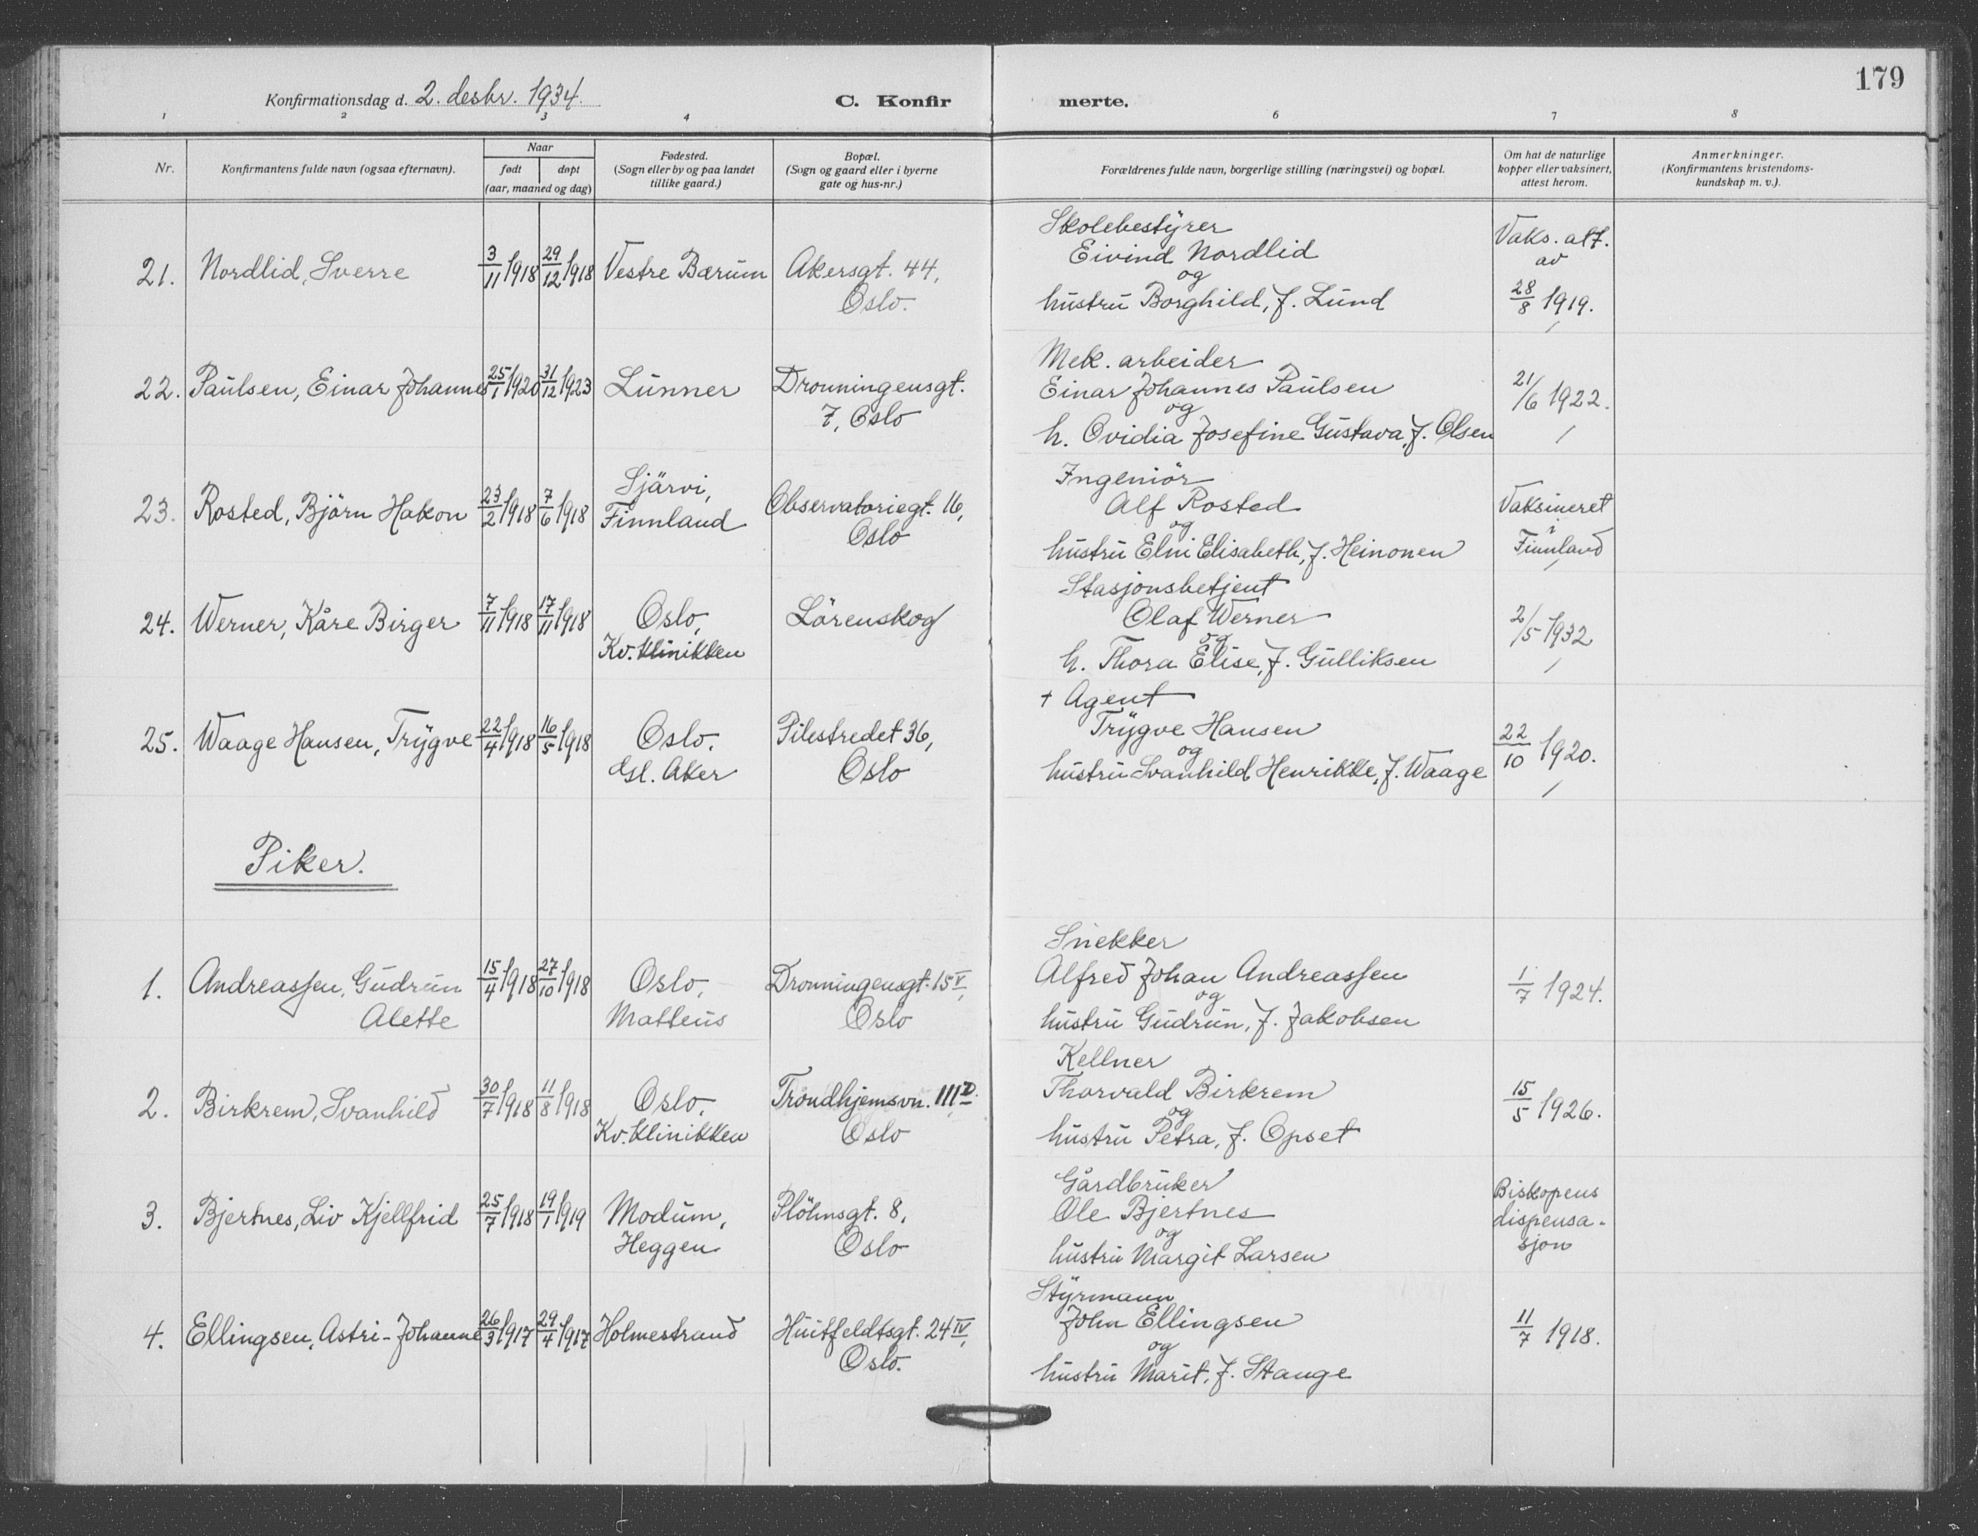 179
Konfirmationsdag d. 2. desbr. 1934.
C. Konfirmerte.
1 2 3 4 6 7 8
Nr.
Konfirmantens fulde navn (ogsaa efternavn).
Naar
født
døpt
(aar, maaned og dag)
Fødested.
(Sogn eller by og paa landet
tillike gaard.)
Bopæl.
(Sogn og gaard eller i byerne
gate og hus-nr.)
Forældrenes fulde navn, borgerlige stilling (næringsvei) og bopæl.
Om hat de naturlige
kopper eller vaksinert,
attest herom.
Anmerkninger.
(Konfirmantens kristendoms-
kundskap m. v.).
21. Nordlid, Sverre 3/11 1918 29/12 1918 Vestre Bærum
Akersgt. 44,
Oslo.
Skolebestyrer
Eivind Nordlid
og
hustru Borghild, f. Lund
Vaks. att.
av
28/8 1919.
22. Paulsen, Einar Johannes 25/1 1920 31/12 1923 Lunner
Dronningensgt.
7, Oslo
Mek. arbeider
Einar Johannes Paulsen
og
h. Ovidia Josefine Gustava, f. Olsen
21/6 1922.
23. Rosted, Björn Hakon 23/2 1918 7/6 1918
Sjärvi,
Finnland
Observatoriegt. 16,
Oslo
Ingeniör
Alf Rosted
og
hustru Elni Elisabeth, f. Heinonen
Vaksineret
i
Finnland
24. Werner, Kåre Birger 7/11 1918 17/11 1918
Oslo,
Kv. klinikken
Lörenskog
Stasjonsbetjent
Olaf Werner
og
h. Thora Elise, f. Gulliksen
2/5 1932
25. Waage Hansen, Trygve 22/4 1918 16/5 1918
Oslo.
Gl. Aker
Pilestredet 36,
Oslo
+ Agent
Trygve Hansen
og
hustru Svanhild Henrikke, f. Waage
22/10 1920.
Piker.
1. Andreassen, Gudrun
Alette
15/4 1918 27/10 1918
Oslo,
Matteus
Dronningensgt. 15 V,
Oslo
Snekker
Alfred Johan Andreassen
og
hustru Gudrun, f. Jakobsen
1/7 1924.
2. Birkrem, Svanhild 30/7 1918 11/8 1918
Oslo.
Kv. klinikken
Trondhjemsvn.
Oslo
Kellner
Thorvald Birkrem
og
hustru Petra, f. Opset
15/5 1926.
3. Bjertnes, Liv Kjellfrid 25/7 1918 19/1 1919
Modum,
Heggen
Plöhnsgt. 8,
Oslo
Gårdbruker
Ole Bjertnes
og
hustru Margit Larsen
Biskopens
dispensa-
sjon
4. Ellingsen, Astri-Johanne 26/3 1917 29/4 1917 Holmestrand
Huitfeldtsgt. 24 IV,
Oslo.
Styrmann
John Ellingsen
og
hustru Marit, f. Stange
11/7 1918.